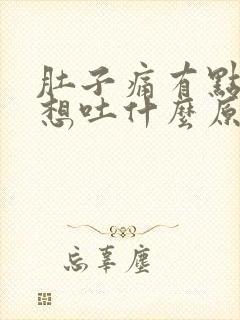 肚子痛有點
想吐什麼原
忘辜塵